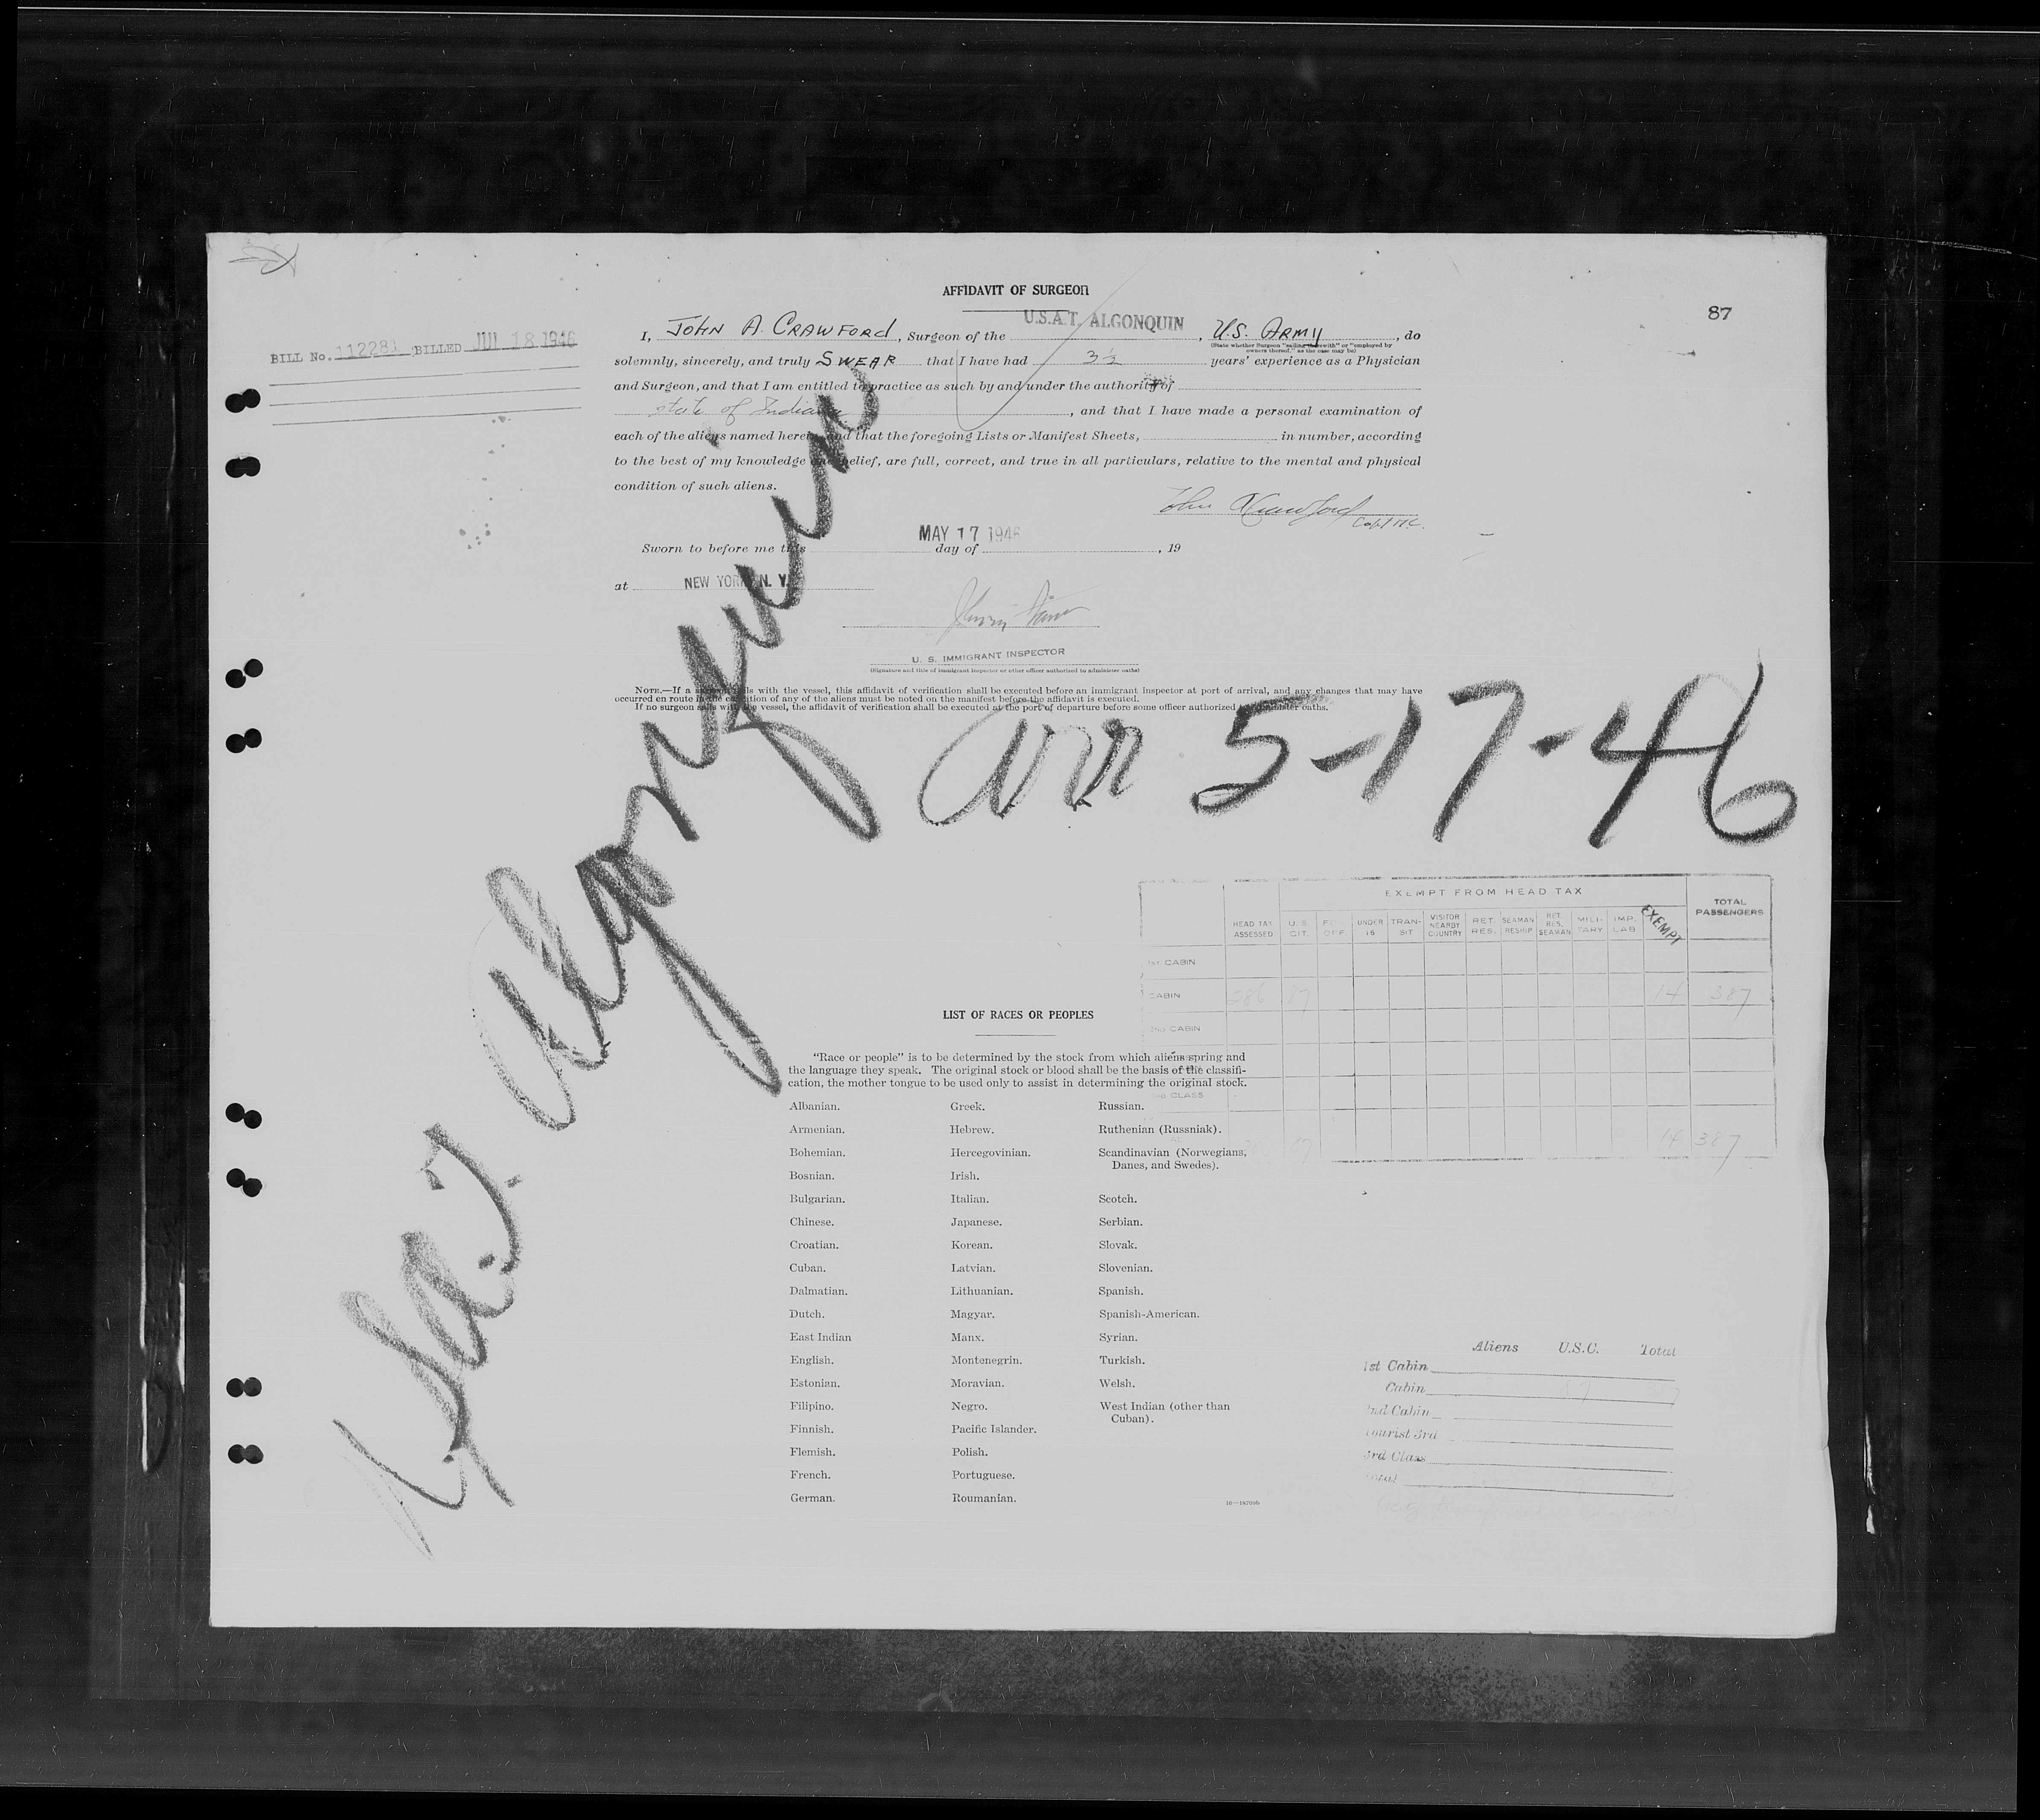 AFFIDAVIT OF SURGEON
87
BILL No. 112281 BILLED JUL 18 1946
I, JOHN A. CRAWFORD, Surgeon of the U.S.A.T. ALGONQUIN, U.S. ARMY, do
(State whether Surgeon "sailing therewith" or "employed by
owners thereof," as the case may be)
solemnly, sincerely, and truly SWEAR that I have had 3½ years' experience as a Physician
and Surgeon, and that I am entitled to practice as such by and under the authority of
State of Indiana, and that I have made a personal examination of
each of the aliens named herein, and that the foregoing Lists or Manifest Sheets, in number, according
to the best of my knowledge and belief, are full, correct, and true in all particulars, relative to the mental and physical
condition of such aliens.
John A Crawford
Capt M.C.
MAY 17 1946
Sworn to before me this day of , 19
at NEW YORK, N. Y.
U. S. IMMIGRANT INSPECTOR
(Signature and title of immigrant inspector or other officer authorized to administer oaths)
NOTE.—If a surgeon sails with the vessel, this affidavit of verification shall be executed before an immigrant inspector at port of arrival, and any changes that may have
occurred en route in the condition of any of the aliens must be noted on the manifest before the affidavit is executed.
If no surgeon sails with the vessel, the affidavit of verification shall be executed at the port of departure before some officer authorized to administer oaths.
U.S.A.T. Algonquin
arr 5-17-46
EXEMPT FROM HEAD TAX
HEAD TAX ASSESSED U.S. CIT. FOR. OFF. UNDER 16 TRANSIT VISITOR NEARBY COUNTRY RET. RES. SEAMAN RESHIP RET. RES. SEAMAN MILITARY IMP. LAB EXEMPT TOTAL PASSENGERS
1st CABIN
CABIN 286 87 14 387
2ND CABIN
3rd CLASS
87 14 387
LIST OF RACES OR PEOPLES
"Race or people" is to be determined by the stock from which aliens spring and
the language they speak. The original stock or blood shall be the basis of the classifi-
cation, the mother tongue to be used only to assist in determining the original stock.
Albanian.
Armenian.
Bohemian.
Bosnian.
Bulgarian.
Chinese.
Croatian.
Cuban.
Dalmatian.
Dutch.
East Indian
English.
Estonian.
Filipino.
Finnish.
Flemish.
French.
German.
Greek.
Hebrew.
Hercegovinian.
Irish.
Italian.
Japanese.
Korean.
Latvian.
Lithuanian.
Magyar.
Manx.
Montenegrin.
Moravian.
Negro.
Pacific Islander.
Polish.
Portuguese.
Roumanian.
Russian.
Ruthenian (Russniak).
Scandinavian (Norwegians,
Danes, and Swedes).
Scotch.
Serbian.
Slovak.
Slovenian.
Spanish.
Spanish-American.
Syrian.
Turkish.
Welsh.
West Indian (other than
Cuban).
Aliens U.S.C. Total
1st Cabin
Cabin 87
2nd Cabin
Tourist 3rd
3rd Class
Total